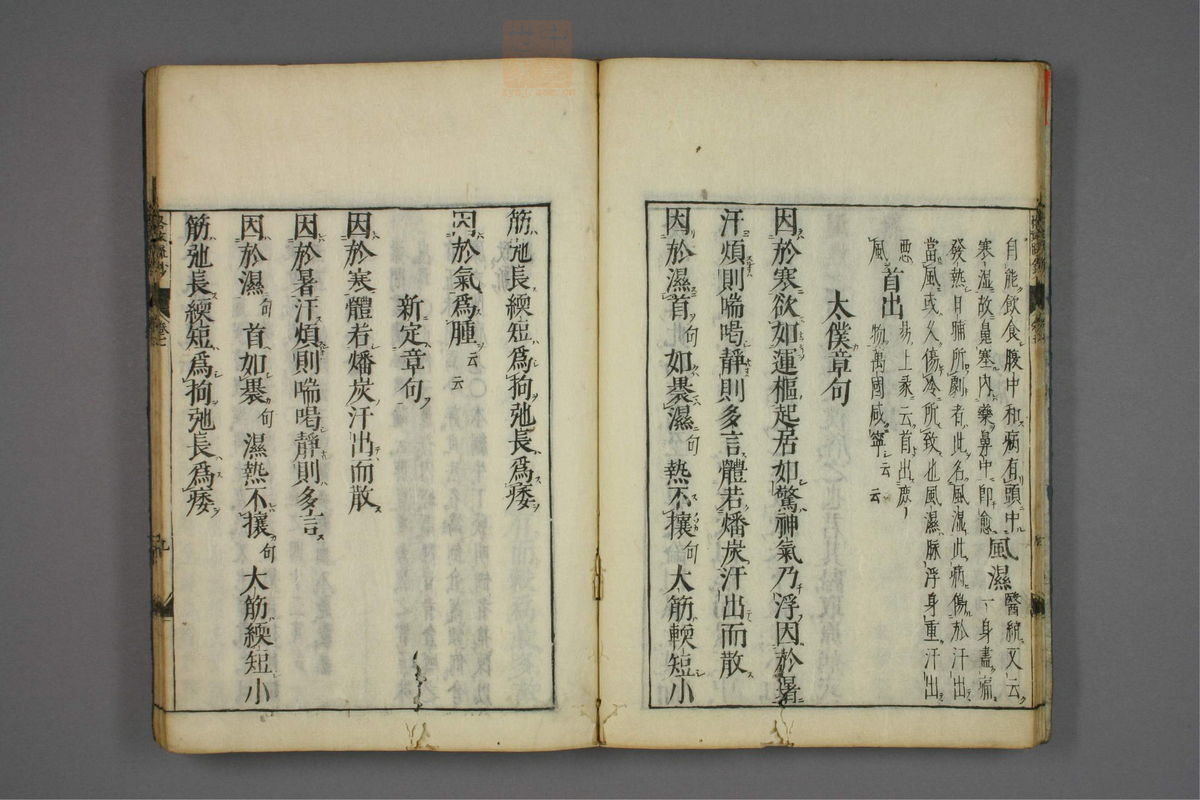 自能飲食腹中和病有頭中
寒濕故鼻塞内藥鼻中即愈
風濕
醫統又云
一身盡痛
發熱日晡所劇者此名風濕此病傷於汗出
當風或久傷冷所致也風濕脉浮身重汗出
惡
風
首出
易上彖云首出庶
物萬國咸寧云云
太僕章句
因於寒欲如運樞起居如驚神氣乃浮因於暑
汗煩則喘喝靜則多言體若燔炭汗出而散
因於濕首句如裹濕句熱不攘句大筋軟短小
筋弛長緛短爲拘弛長爲痿
因於氣爲腫云云
新定章句
因於寒體若燔炭汗出而散
因於暑汗煩則喘喝靜則多言
因於濕句首如裹句濕熱不攘句大筋緛短小
筋弛長緛短爲拘弛長爲痿